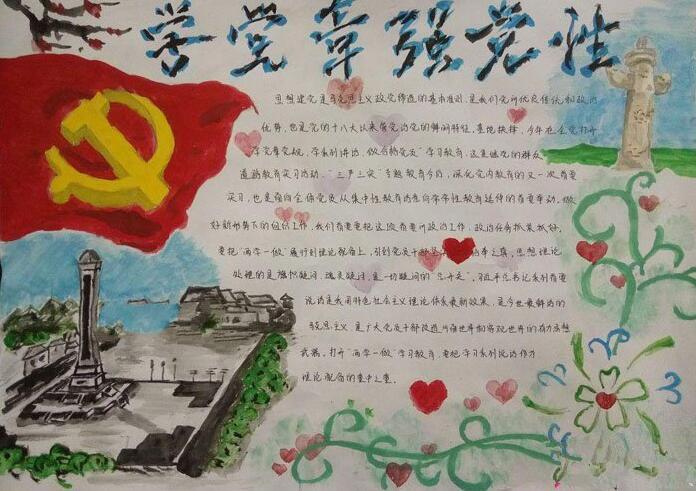 学党章强党性
思想建党是马克思主义政党缔造的基本准则,是我们党的优良传统和政治
优势,也是党的十八大以来管党治党的鲜明特征。直抱抉择,今年在全党打开
学党章党规、学系列讲话,做合格党员"学习教育,这是继党的群众
道路教育实习活动、"三严三实"专题教育今后,深化党内教育的又一次首要
实习,也是面向全体党员从集中性教育活意向常常性教育延伸的首要举动。做
好新形势下的组织工作,我们首要要把这股首要的政治工作、政治任务抓紧抓好。
要把"两学一做"履行到理论配备上,引到党员干部 本之真。思想理论
处理的是旗帜疑问、魂灵疑问,是一切疑问的"总开关"。习近平总书记系列首要
说话是我国特色社会主义理论体系最新效果,是今世最鲜活的
马克思主义,是广大党员干部改造片面世界和客观世界的有力思想
武器。打开"两学一做"学习教育,要把学习系列说话作为
理论配备的重中之重。